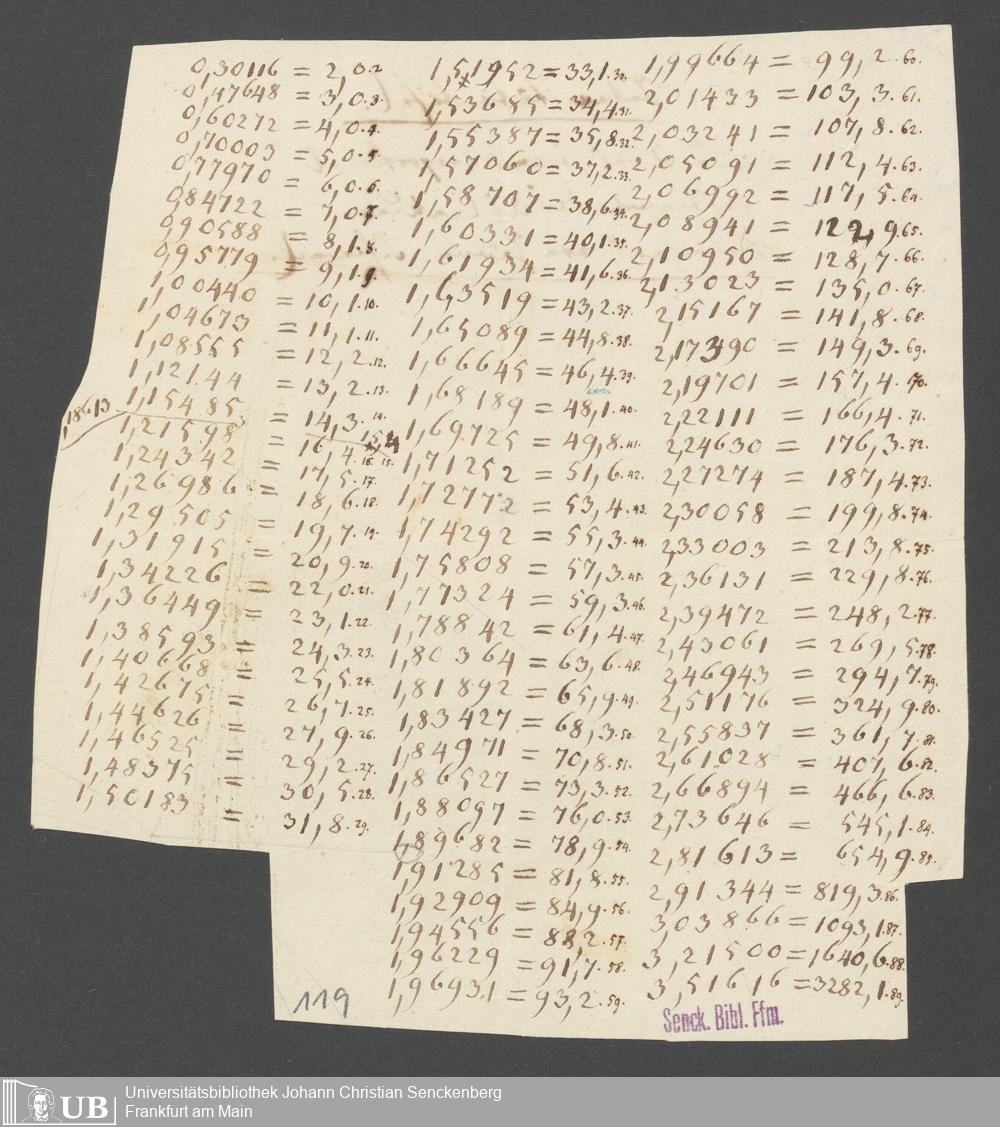 0,30116 = 2,0.2
0,47648 = 3,0.3.
0,60272 = 4,0.4.
0,70003 = 5,0.5.
0,77970 = 6,0.6.
0,84722 = 7,0.7.
0,90588 = 8,1.8.
0,95779 = 9,1.9.
1,00440 = 10,1.10.
1,04673 = 11,1.11.
1,08555 = 12,2.12.
1,12144 = 13,2.13.
1,15485 = 14,3.14.
1,18613 15,4 15.
1,21598 = 16,4.16.
1,24342 = 17,5.17.
1,26986 = 18,6.18.
1,29505 = 19,7.19.
1,31915 = 20,9.20.
1,34226 = 22,0.21.
1,36449 = 23,1.22.
1,38593 = 24,3.23.
1,40668 = 25,5.24.
1,42675 = 26,7.25.
1,44626 = 27,9.26.
1,46525 = 29,2.27.
1,48375 = 30,5.28.
1,50183 = 31,8.29.
1,51952 = 33,1.30.
1,53685 = 34,4.31.
1,55387 = 35,8.32.
1,57060 = 37,2.33.
1,58707 = 38,6.34.
1,60331 = 40,1.35.
1,61934 = 41,6.36.
1,63519 = 43,2.37.
1,65089 = 44,8.38.
1,66645 = 46,4.39.
1,68189 = 48,1.40.
1,69725 = 49,8.41.
1,71252 = 51,6.42.
1,72772 = 53,4.43.
1,74292 = 55,3.44.
1,75808 = 57,3.45.
1,77324 = 59,3.46.
1,78842 = 61,4.47.
1,80364 = 63,6.48.
1,81892 = 65,9.49.
1,83427 = 68,3.50.
1,84971 = 70,8.51.
1,86527 = 73,3.52.
1,88097 = 76,0.53.
1,89682 = 78,9.54.
1,91285 = 81,8.55.
1,92909 = 84,9.56.
1,94556 = 88,2.57.
1,96229 = 91,7.58.
1,96931 = 93,2.59.
1,99664 = 99,2.60.
2,01433 = 103,3.61.
2,03241 = 107,8.62.
2,05091 = 112,4.63.
2,06992 = 117,5.64.
2,08941 = 122,9.65.
2,10950 = 128,7.66.
2,13023 = 135,0.67.
2,15167 = 141,8.68.
2,17390 = 149,3.69.
2,19701 = 157,4.70.
2,22111 = 166,4.71.
2,24630 = 176,3.72.
2,27274 = 187,4.73.
2,30058 = 199,8.74.
2,33003 = 213,8.75.
2,36131 = 229,8.76.
2,39472 = 248,2.77.
2,43061 = 269,5.78.
2,46943 = 294,7.79.
2,51176 = 324,9.80.
2,55837 = 361,7.81.
2,61028 = 407,6.82.
2,66894 = 466,6.83.
2,73646 = 545,1.84.
2,81613 = 654,9.85.
2,91344 = 819,3.86.
3,03866 = 1093,1.87.
3,21500 = 1640,6.88.
3,51616 = 3282,1.89.
119
Senck. Bibl. Ffm.
UB
Universitätsbibliothek Johann Christian Senckenberg
Frankfurt am Main